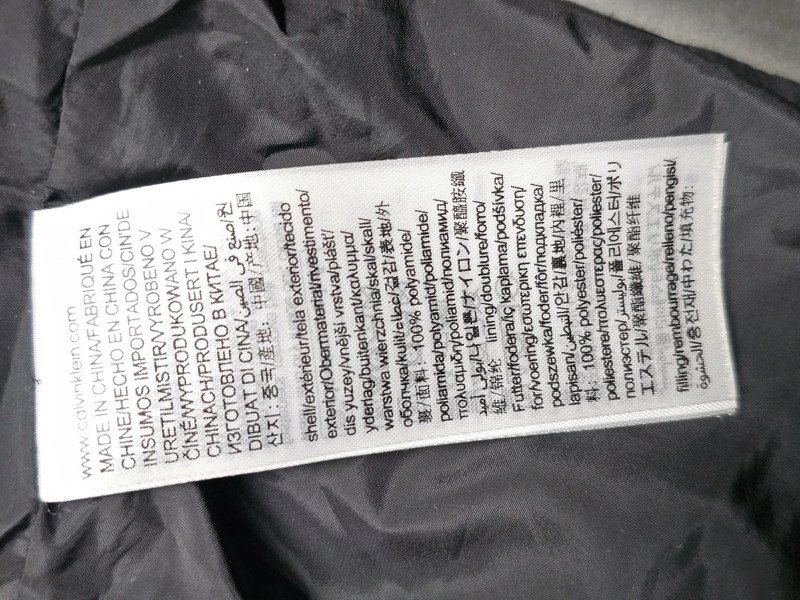 www.calvinklein.com
MADE IN CHINA/FABRIQUÉ EN
CHINE/HECHO EN CHINA CON
INSUMOS IMPORTADOS/CIN'DE
URETILMISTIR/VYROBENO V
ČÍNĚ/WYPRODUKOWANO W
CHINACH/PRODUSERT I KINA/
ИЗГОТОВЛЕНО В КИТАЕ/
DIBUAT DI CINA/صنع في الصين/원
산지: 중국產地: 中國 /产地:中国
shell/extérieur/tela exterior/tecido
exterior/Obermaterial/rivestimento/
dis yuzey/vnější vrstva/plášť/
yderlag/buitenkant/κάλυμμα/
warstwa wierzchnia/skal/skall/
оболочка/kulit/غطاء/겉감/表地/外
裏/面料: 100% polyamide/
poliamida/polyamid/poliamide/
πολυαμίδη/poliamid/полиамид/
بولي أميد/나일론/ナイロン/聚醯胺纖
維/锦纶 lining/doublure/forro/
Futter/fodera/iç kaplama/podšívka/
for/voering/εσωτερική επένδυση/
podszewka/foder/fôr/подкладка/
lapisan/البطانة/안감/裏地/內裡/里
料: 100% polyester/poliéster/
poliestere/πολυεστέρας/poliester/
полиэстер/بوليستر/폴리에스터/ポリ
エステル/聚酯纖維/聚酯纤维
filling/rembourrage/relleno/pengisi/
الحشوة/충전재/中わた/填充物: